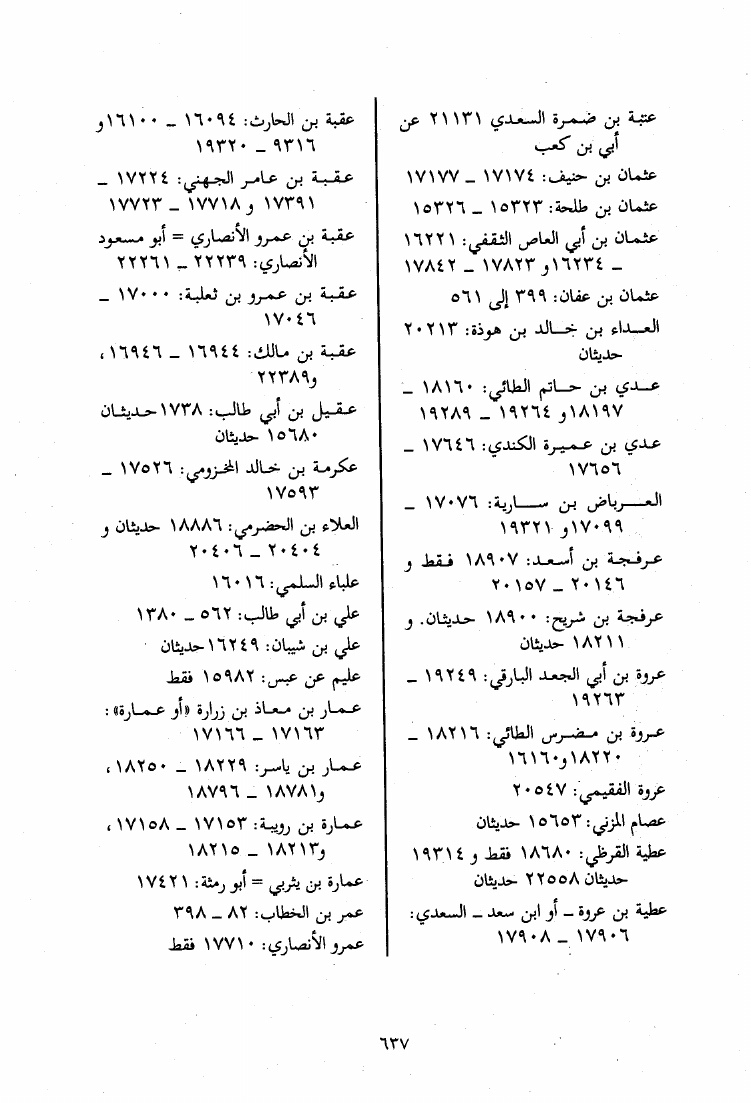 عتبة بن ضمرة السعدي ٢١١٣١ عن
أبي بن كعب
عثمان بن حنيف: ١٧١٧٤ ــ ١٧١٧٧
عثمان بن طلحة: ١٥٣٢٣ ــ ١٥٣٢٦
عثمان بن أبي العاص الثقفي: ١٦٢٢١
ــ ١٦٢٣٤و ١٧٨٢٣ ــ ١٧٨٤٢
عثمان بن عفان: ٣٩٩ إلى ٥٦١
العداء بن خالد بن هوذة: ٢٠٢١٣
حديثان
عدي بن حاتم الطائي: ١٨١٦٠ ــ
١٨١٩٧و ١٩٢٦٤ ــ ١٩٢٨٩
عدي بن عميرة الكندي: ١٧٦٤٦ ــ
١٧٦٥٦
العرباض بن سارية: ١٧٠٧٦ ــ
١٧٠٩٩و ١٩٣٢١
عرفجة بن أسعد: ١٨٩٠٧ فقط و
٢٠١٤٦ ــ ٢٠١٥٧
عرفجة بن شريح: ١٨٩٠٠ حديثان. و
١٨٢١١ حديثان
عروة بن أبي الجعد البارقي: ١٩٢٤٩ ــ
١٩٢٦٣
عروة بن مضرس الطائي: ١٨٢١٦ ــ
١٨٢٢٠و١٦١٦٠
عروة الفقيمي: ٢٠٥٤٧
عصام المزني: ١٥٦٥٣ حديثان
عطية القرظي: ١٨٦٨٠ فقط و ١٩٣١٤
حديثان ٢٢٥٥٨ حديثان
عطية بن عروة ــ أو ابن سعد ــ السعدي:
١٧٩٠٦ ــ ١٧٩٠٨
عقبة بن الحارث: ١٦٠٩٤ ــ ١٦١٠٠و
٩٣١٦ ــ ١٩٣٢٠
عقبة بن عامر الجهني: ١٧٢٢٤ ــ
١٧٣٩١ و ١٧٧١٨ ــ ١٧٧٢٣
عقبة بن عمرو الأنصاري = أبو مسعود
الأنصاري: ٢٢٢٣٩ ــ ٢٢٢٦١
عقبة بن عمرو بن ثعلبة: ١٧٠٠٠ ــ
١٧٠٤٦
عقبة بن مالك: ١٦٩٤٤ ــ ١٦٩٤٦،
و٢٢٣٨٩
عقيل بن أبي طالب: ١٧٣٨حديثان
١٥٦٨٠ حديثان
عكرمة بن خالد المخزومي: ١٧٥٢٦ ــ
١٧٥٩٣
العلاء بن الحضرمي: ١٨٨٨٦ حديثان و
٢٠٤٠٤ ــ ٢٠٤٠٦
علباء السلمي: ١٦٠١٦
علي بن أبي طالب: ٥٦٢ ــ ١٣٨٠
علي بن شيبان: ١٦٢٤٩حديثان
عليم عن عبس: ١٥٩٨٢ فقط
عمار بن معاذ بن زرارة «أو عمارة»:
١٧١٦٣ ــ ١٧١٦٦
عمار بن ياسر: ١٨٢٢٩ ــ ١٨٢٥٠،
و١٨٧٨١ ــ ١٨٧٩٦
عمارة بن رويبة: ١٧١٥٣ ــ ١٧١٥٨،
و١٨٢١٣ ــ ١٨٢١٥
عمارة بن يثربي = أبو رمثة: ١٧٤٢١
عمر بن الخطاب: ٨٢ ــ ٣٩٨
عمرو الأنصاري: ١٧٧١٠ فقط
٦٣٧